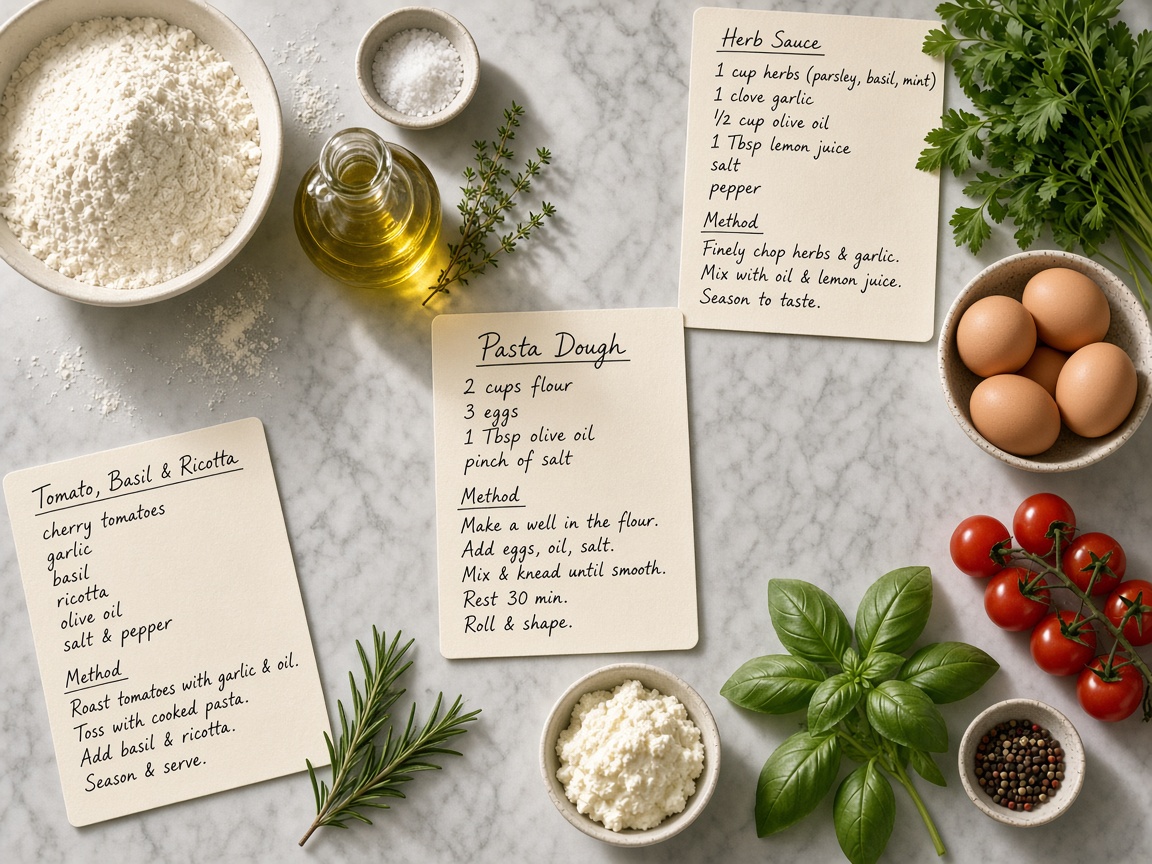 Herb Sauce
1 cup herbs (parsley, basil, mint)
1 clove garlic
1/2 cup olive oil
1 Tbsp lemon juice
salt
pepper
Method
Finely chop herbs & garlic.
Mix with oil & lemon juice.
Season to taste.
Pasta Dough
2 cups flour
3 eggs
1 Tbsp olive oil
pinch of salt
Method
Make a well in the flour.
Add eggs, oil, salt.
Mix & knead until smooth.
Rest 30 min.
Roll & shape.
Tomato, Basil & Ricotta
cherry tomatoes
garlic
basil
ricotta
olive oil
salt & pepper
Method
Roast tomatoes with garlic & oil.
Toss with cooked pasta.
Add basil & ricotta.
Season & serve.